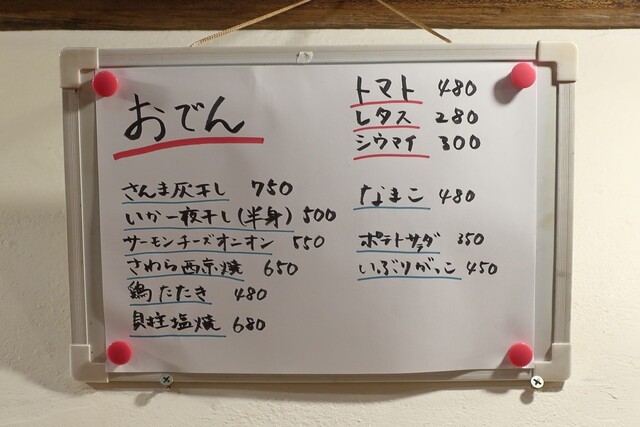 おでん
トマト 480
レタス 280
シウマイ 300
さんま灰干し 750
いか一夜干し(半身) 500
サーモンチーズオニオン 550
さわら西京焼 650
鶏たたき 480
貝柱塩焼 680
なまこ 480
ポテトサラダ 350
いぶりがっこ 450